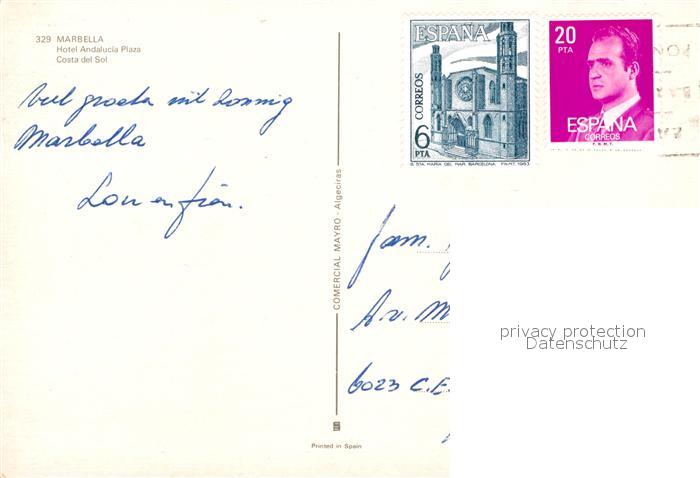 329 MARBELLA
Hotel Andalucía Plaza
Costa del Sol
Veel groeten uit zonnig
Marbella
Lou en Fien.
COMERCIAL MAYRO - Algeciras
Printed in Spain
ESPAÑA
CORREOS
6
PTA
B. STA. MARIA DEL MAR. BARCELONA. FNMT. 1983
20
PTA
ESPAÑA
CORREOS
F.N.M.T.
Fam.
A.v.
6023 C.E.
privacy protection
Datenschutz